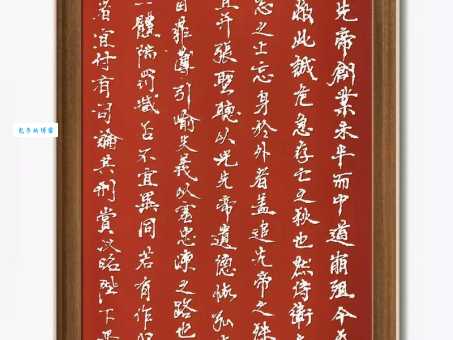 先帝創業未半而中道崩殂今
此誠危急存亡之秋也然侍衛
志之士忘身於外者蓋追先帝之殊
宜開張聖聽以光先帝遺德恢弘
自菲薄引喻失義以塞忠諫之路也
體陟罰臧否不宜異同若有作
者宜付有司論其刑賞以昭陛下